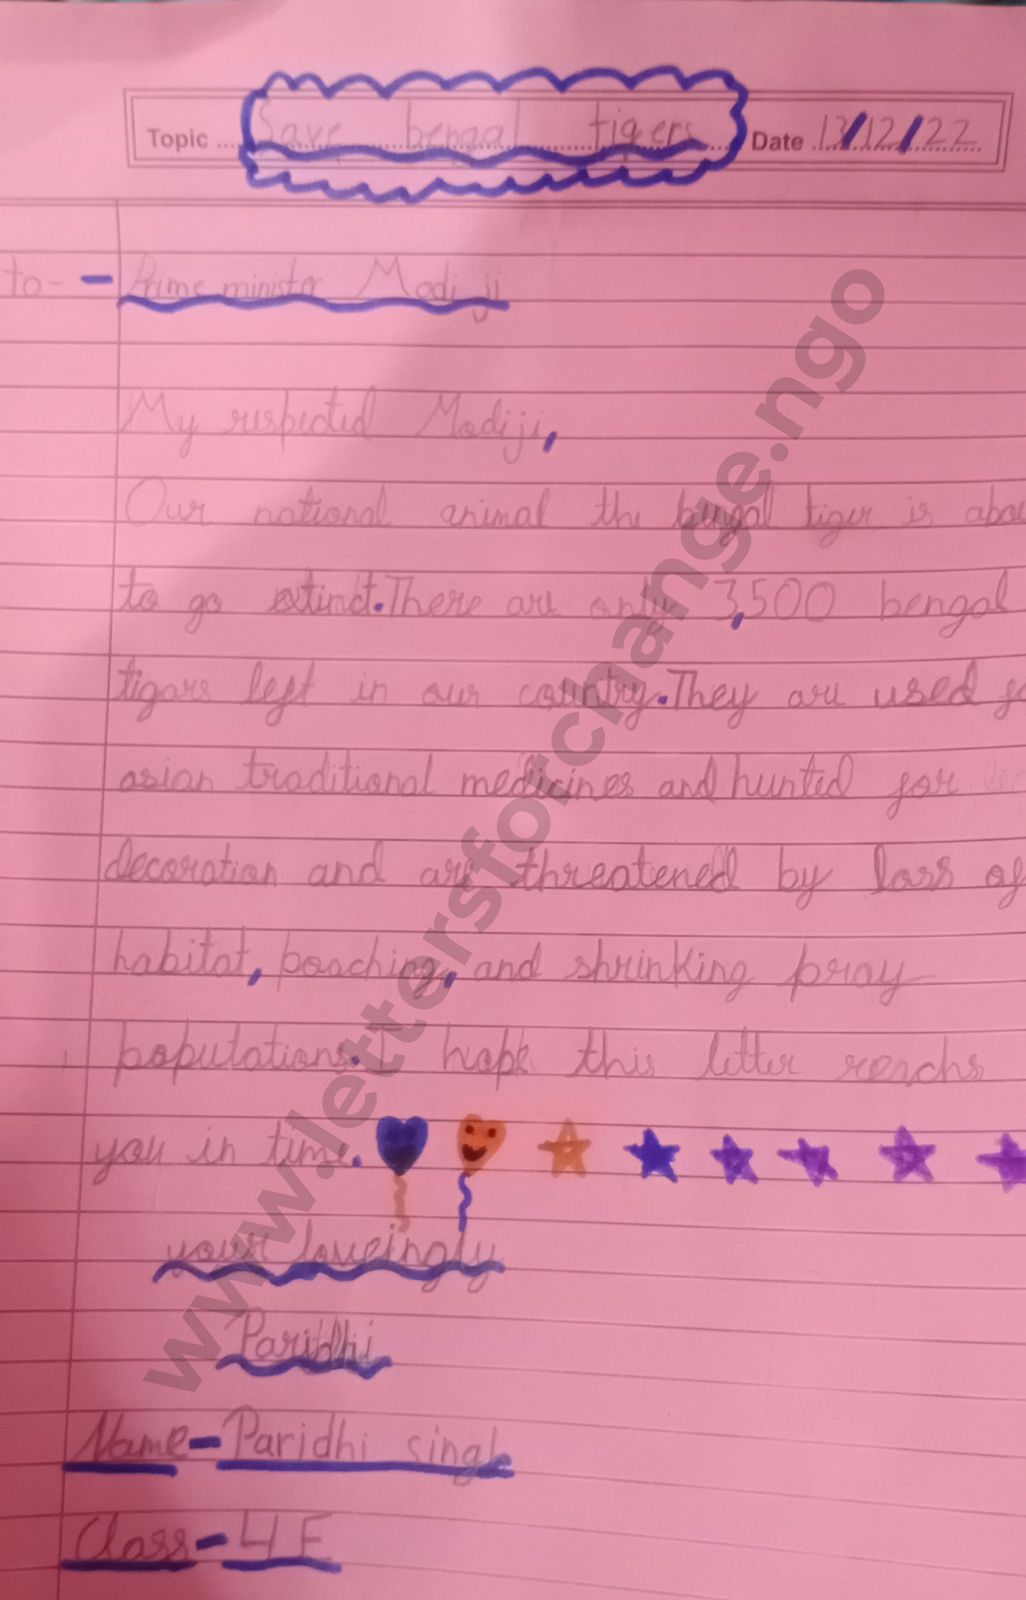 Topic Save bengal tigers Date 13/12/22
to- - Prime minister Modi ji
My respected Modiji,
Our national animal the bengal tiger is abou
to go extinct. There are only 3,500 bengal
tigars left in our country. They are used fo
asian traditional medicines and hunted for
decoration and are threatened by loss of
habitat, poaching, and shrinking pray
populations. I hope this letter reachs
you in time.
your loveingly
Paridhi
Name - Paridhi singh
Class - 4 E
www.lettersforchange.ngo